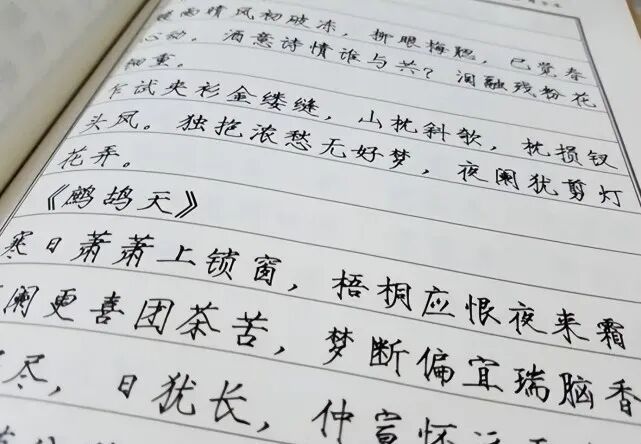 晴风初破冻，柳眼梅腮，已觉春
心动。酒意诗情谁与共？泪融残粉花
钿重。
乍试夹衫金缕缝，山枕斜欹，枕损钗
头风。独抱浓愁无好梦，夜阑犹剪灯
花弄。
《鹧鸪天》
寒日萧萧上锁窗，梧桐应恨夜来霜
阑更喜团茶苦，梦断偏宜瑞脑香
尽，日犹长，仲宣怀远